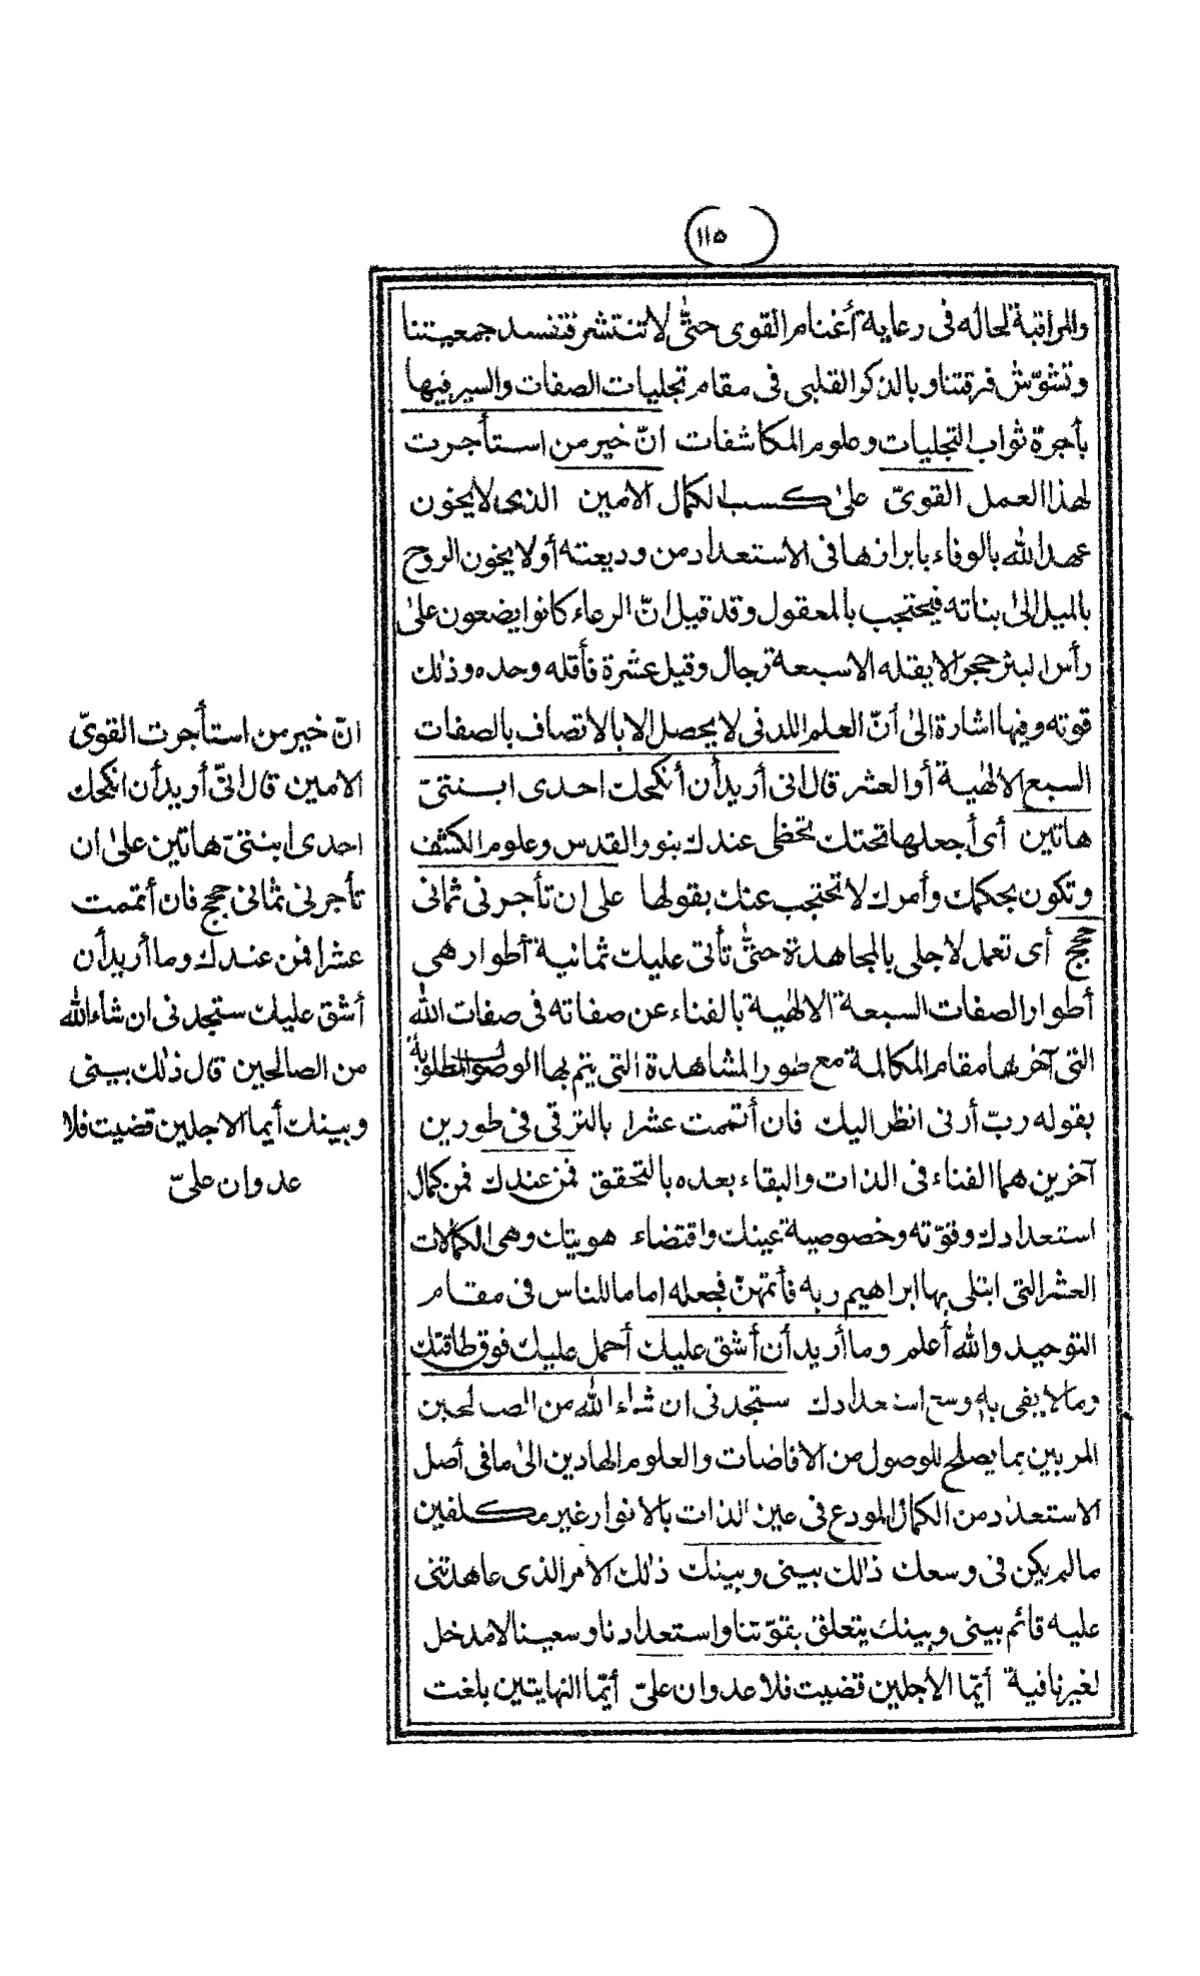 (١١٥)
والمراقبة لحاله فى رعاية أغنام القوى حتّى لا تنتشر فتفسد جمعيتنا
وتشوّش فرقتنا وبالذكر القلبى فى مقام تجليات الصفات والسير فيها
بأجرة ثواب التجليات وعلوم المكاشفات انّ خير من استأجرت
لهذا العمل القوىّ على كسب الكمال الامين الذى لا يخون
عهد الله بالوفاء بابرازها فى الاستعداد من وديعته أو لا يخون الروح
بالميل الى بناته فيحتجب بالمعقول وقد قيل انّ الرعاء كانوا يضعون على
رأس البئر حجرا لا يقله الا سبعة رجال وقيل عشرة فأقله وحده وذلك
قوته وفيها اشارة الى أنّ العلم اللدنى لا يحصل الا بالاتصاف بالصفات
السبع الالهية أو العشر قال انى أريد أن أنكحك احدى ابنتىّ
هاتين أى أجعلها تحتك تحظى عندك بنور القدس وعلوم الكشف
وتكون بحكمك وأمرك لا تحتجب عنك بقولها على ان تأجرنى ثمانى
حجج أى تعمل لاجلى بالمجاهدة حتّى تأتى عليك ثمانية أطوار هى
أطوار الصفات السبعة الالهية بالفناء عن صفاته فى صفات الله
التى آخرها مقام المكالمة مع طور المشاهدة التى يتم بها الوصول المطلوب
بقوله ربّ أرنى انظر اليك فان أتممت عشرا بالترقى فى طورين
آخرين هما الفناء فى الذات والبقاء بعده بالتحقق فمن عندك فمن كمال
استعدادك وقوّته وخصوصية عينك واقتضاء هويتك وهى الكمالات
العشر التى ابتلى بها ابراهيم ربه فأتمهنّ فجعله اماما للناس فى مقام
التوحيد والله أعلم وما أريد أن أشق عليك أحمل عليك فوق طاقتك
وما لا يفى به وسع استعدادك ستجدنى ان شاء الله من الصالحين
المربين بما يصلح للوصول من الافاضات والعلوم الهادين الى ما فى أصل
الاستعداد من الكمال المودع فى عين الذات بالانوار غير مكلفين
ما لم يكن فى وسعك ذلك بينى وبينك ذلك الأمر الذى عاهدتنى
عليه قائم بينى وبينك يتعلق بقوّتنا واستعدادنا وسعينا لا مدخل
لغيرنا فيه أيّما الأجلين قضيت فلا عدوان علىّ أيّما النهايتين بلغت
انّ خير من استأجرت القوىّ
الامين قال انّى أريد أن انكحك
احدى ابنتىّ هاتين على ان
تأجرنى ثمانى حجج فان أتممت
عشرا فمن عندك وما أريد أن
أشق عليك ستجدنى ان شاء الله
من الصالحين قال ذلك بينى
وبينك أيما الاجلين قضيت فلا
عدوان علىّ